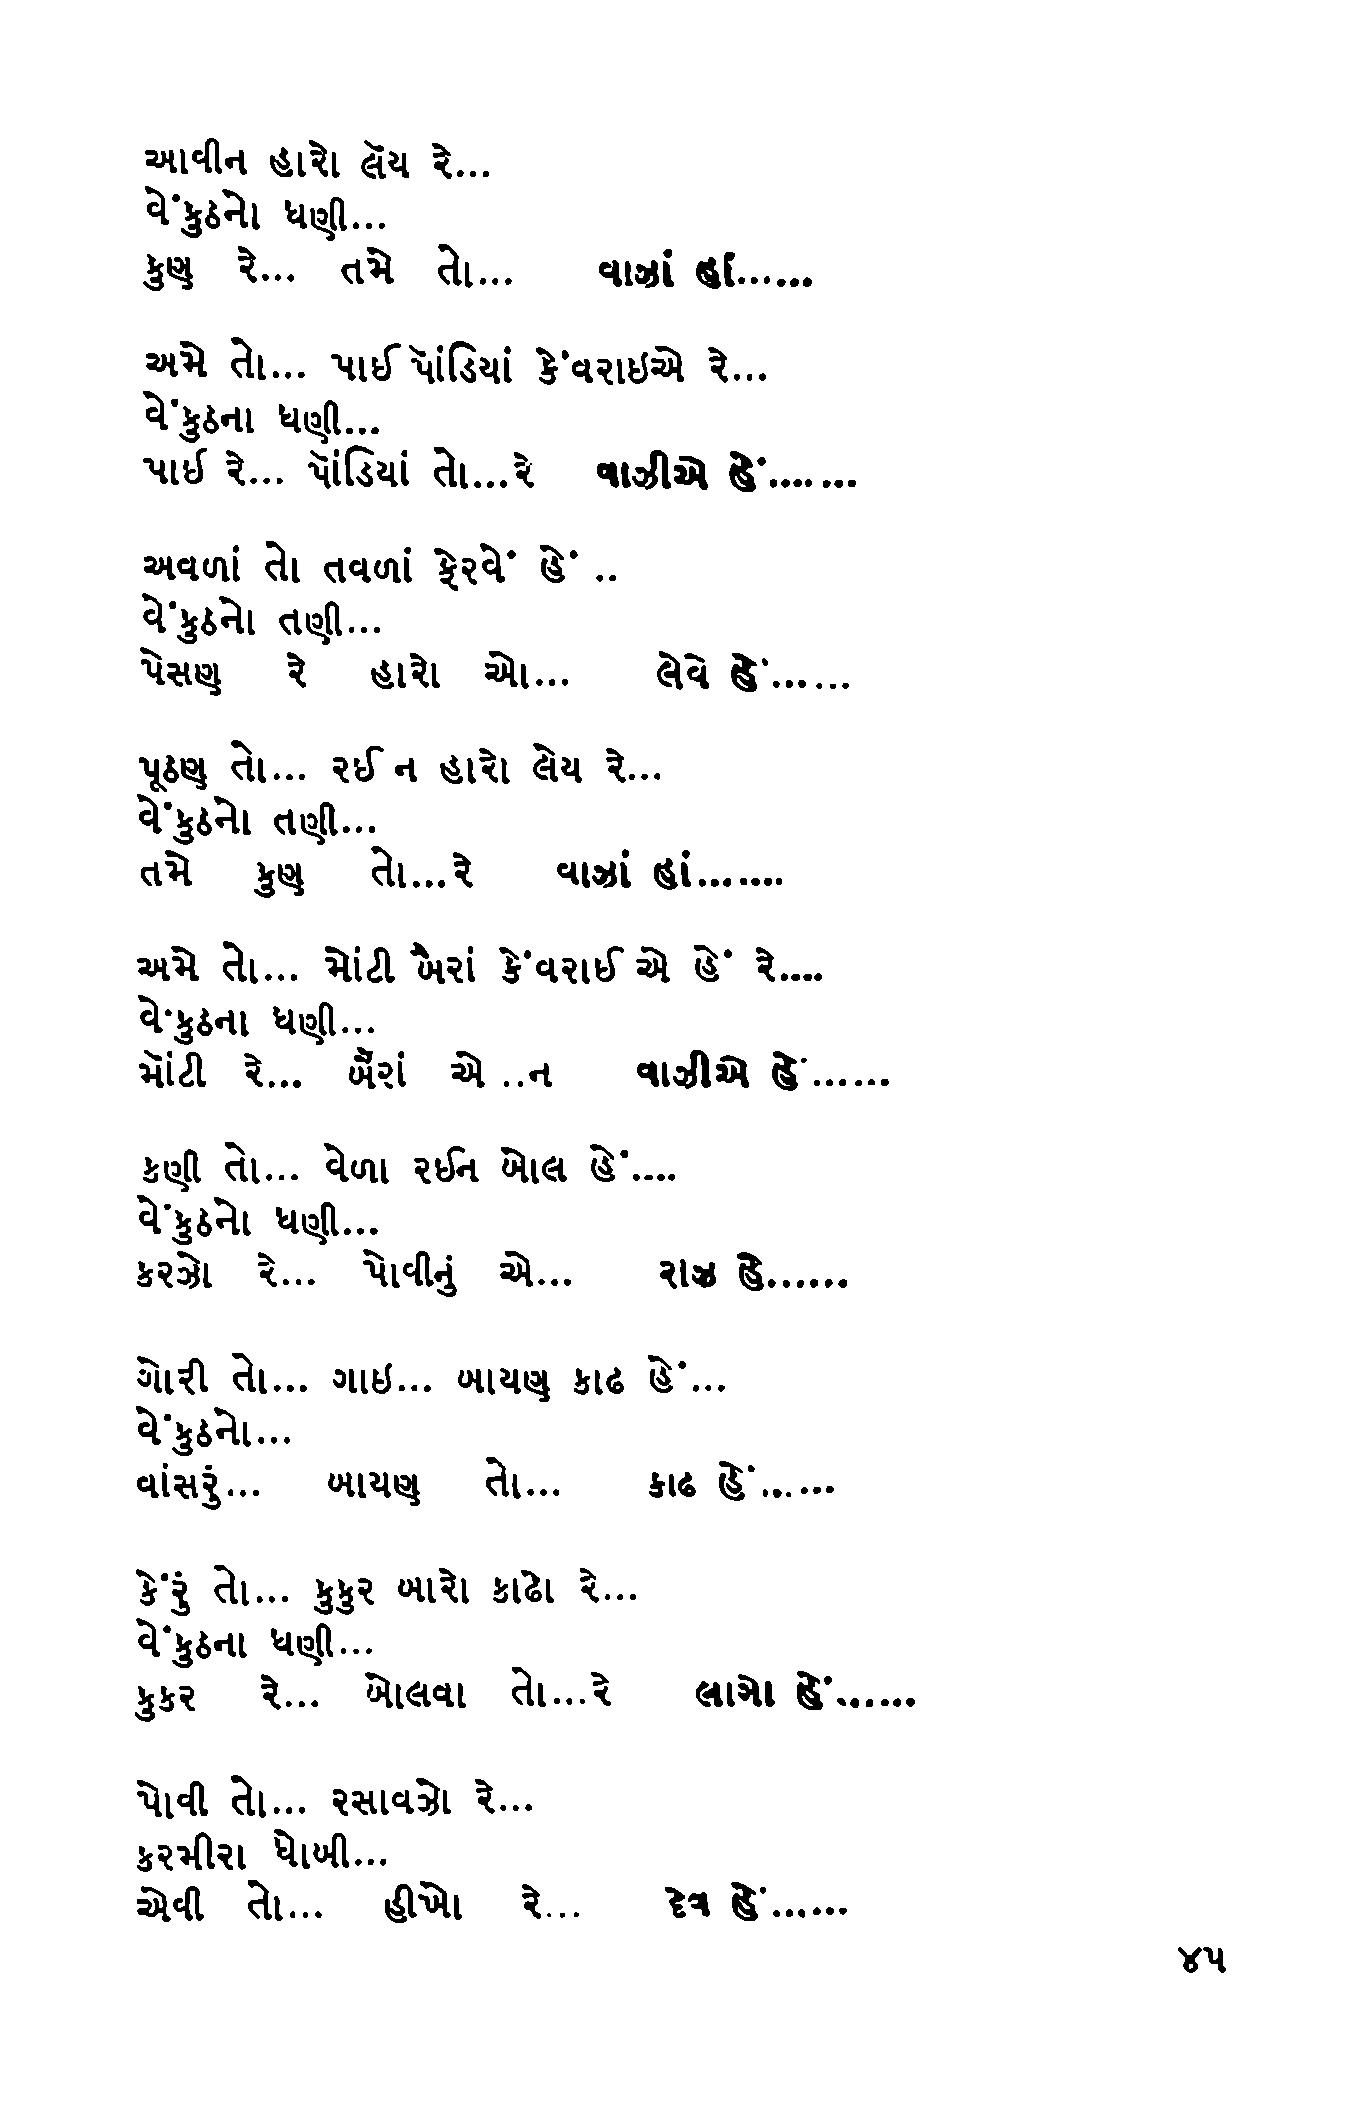 આવીન હારો લૅય રે...
વેંકુઠનો ધણી...
કુણ રે... તમે તો... વાઝાં હાં......
અમે તો... પાઈ પૉંડિયાં કેંવરાઇએ રે...
વેંકુઠના ધણી...
પાઈ રે... પૉંડિયાં તો...રે વાઝીએ હેં.......
અવળાં તો તવળાં ફેરવેં હેં ..
વેંકુઠનો તણી...
પેસણ રે હારો ઓ... લેવે હેં......
પૂઠણ તો... રઈ ન હારો લેય રે...
વેંકુઠનો તણી...
તમે કુણ તો...રે વાઝાં હાં.......
અમે તો... મોંટી બૈરાં કેંવરાઈ એ હેં રે....
વેંકુઠના ધણી...
મૉંટી રે... બૈરાં એ ..ન વાઝીએ હેં......
કણી તો... વેળા રઈન બોલ હેં....
વેંકુઠનો ધણી...
કરઝો રે... પોવીનું એ... રાઝ હે......
ગોરી તો... ગાઇ... બાયણ કાઢ હેં...
વેંકુઠનો...
વાંસરું... બાયણ તો... કાઢ હેં......
કેંરું તો... કુકુર બારો કાઢો રે...
વેંકુઠના ધણી...
કુકર રે... બોલવા તો...રે લાગો હેં......
પોવી તો... રસાવઝો રે...
કરમીરા ધોબી...
એવી તો... હીખો રે... દેત્ર હેં......
૪૫